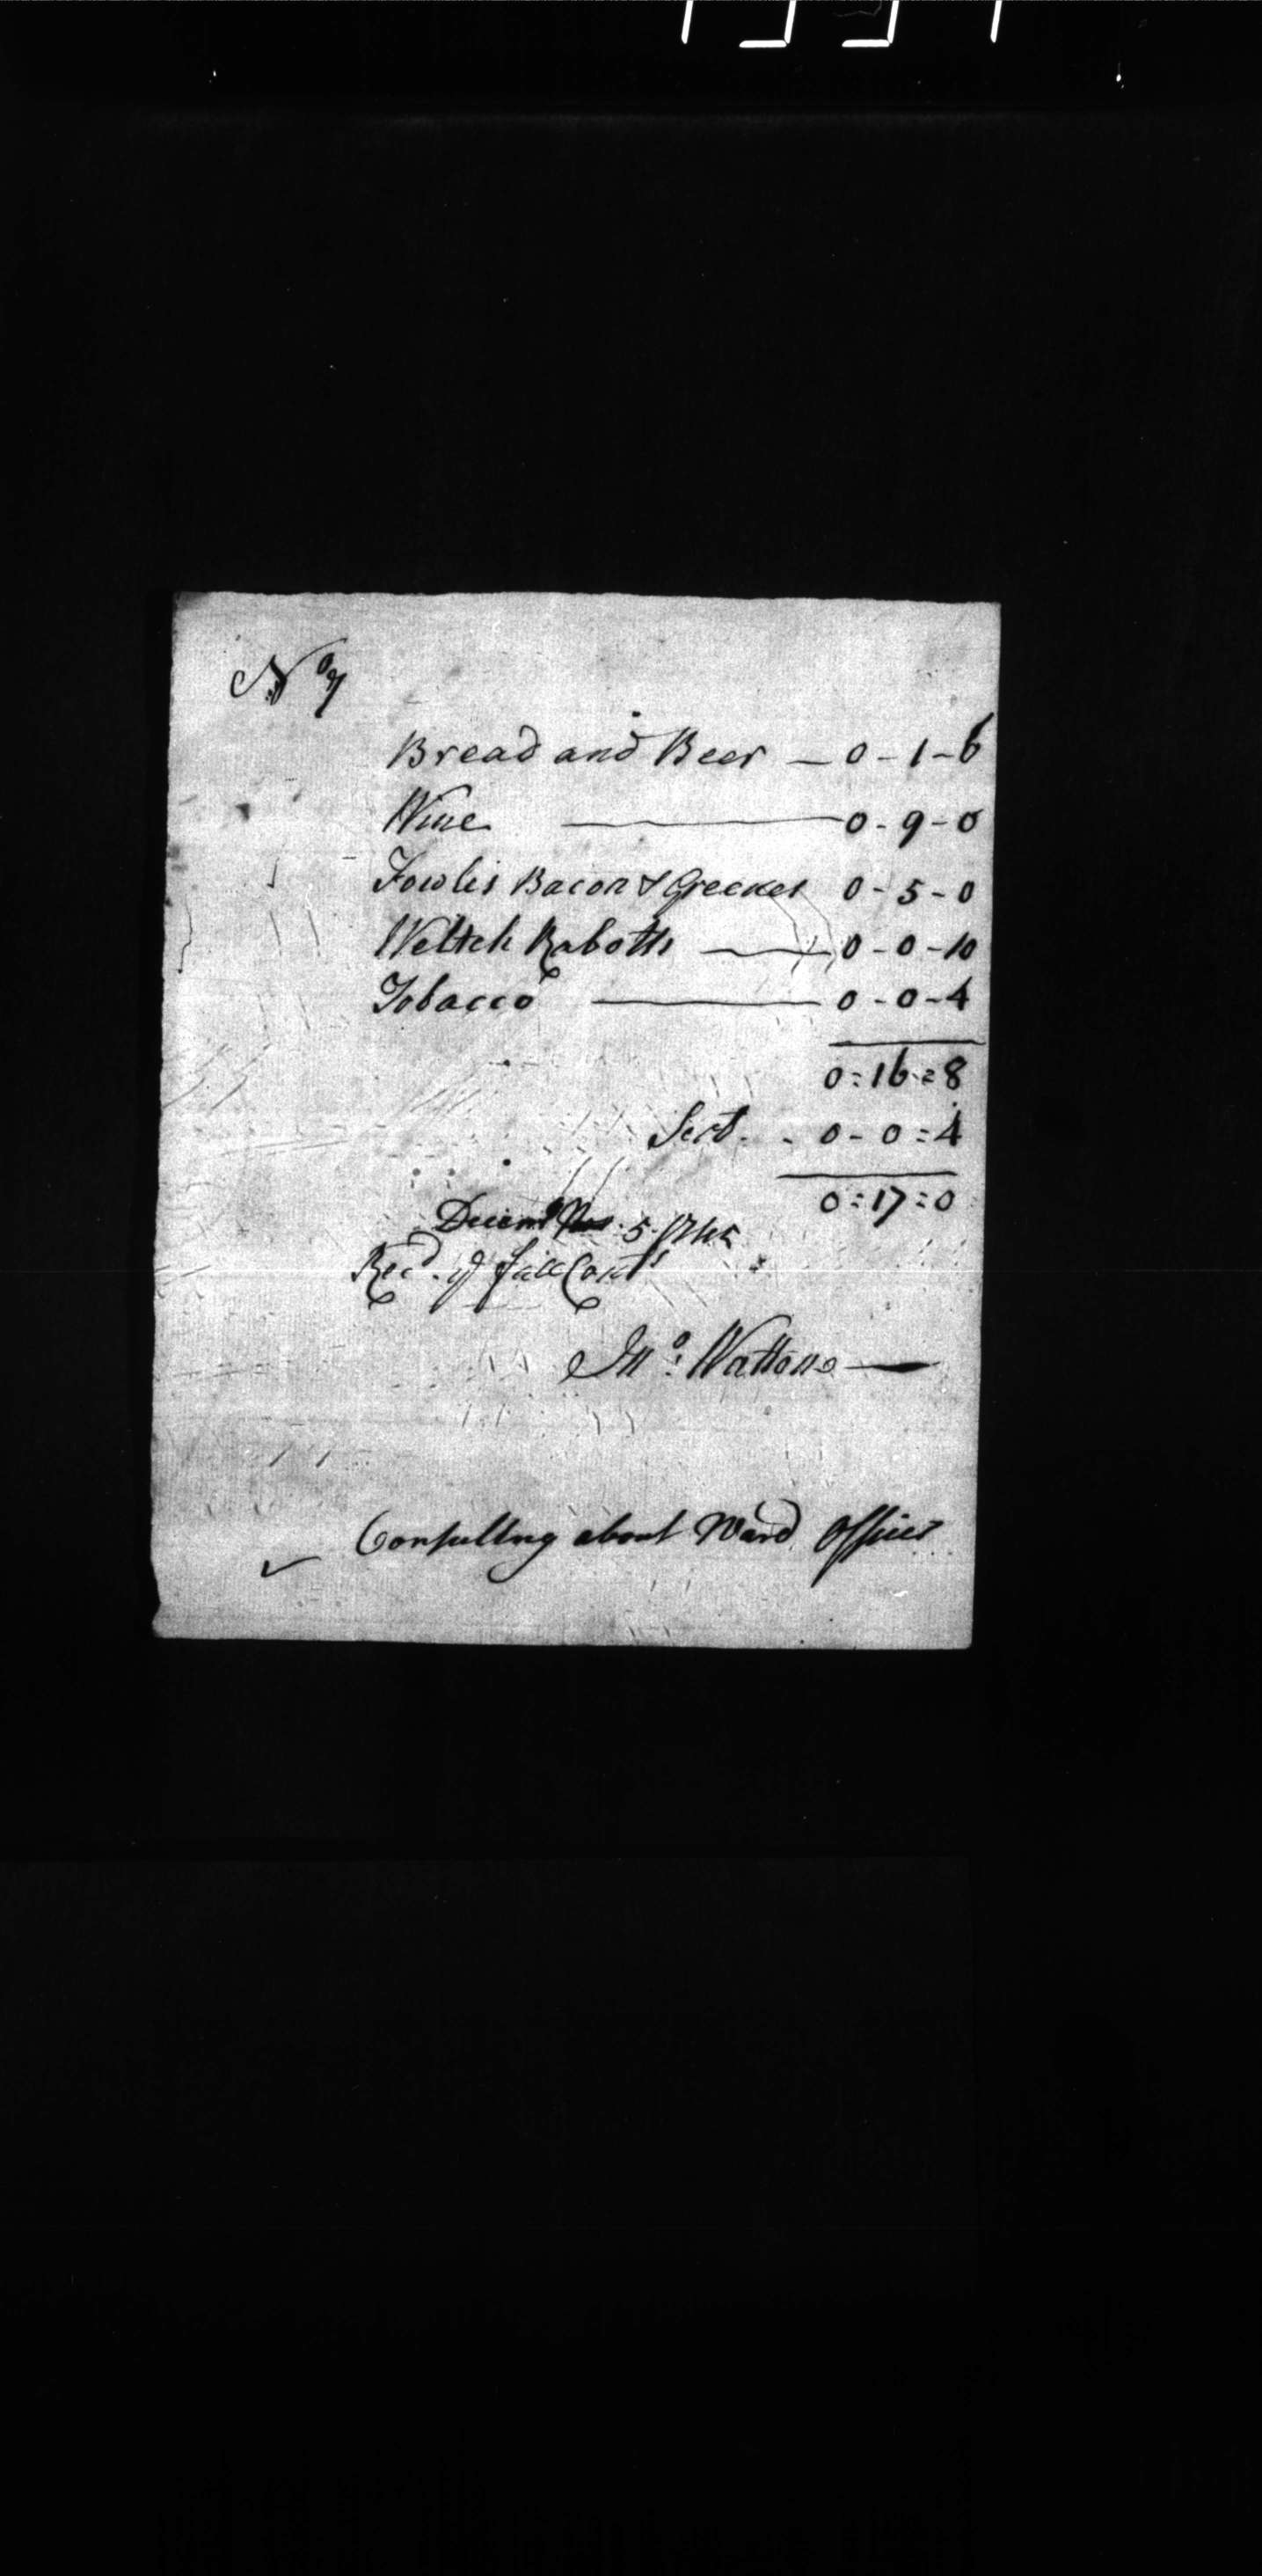 No 7
Bread and Beer — 0-1-6
Wine — 0-9-0
Fowlis Bacon & Greenes 0-5-0
Weltch Rabotts — 0-0-10
Tobacco — 0-0-4
0=16=8
Sert. - 0-0=4
0=17=0
Decemr 5. 1745
Recd. ye full Conts
Jno: Wattson —
Consulting about Ward Offices